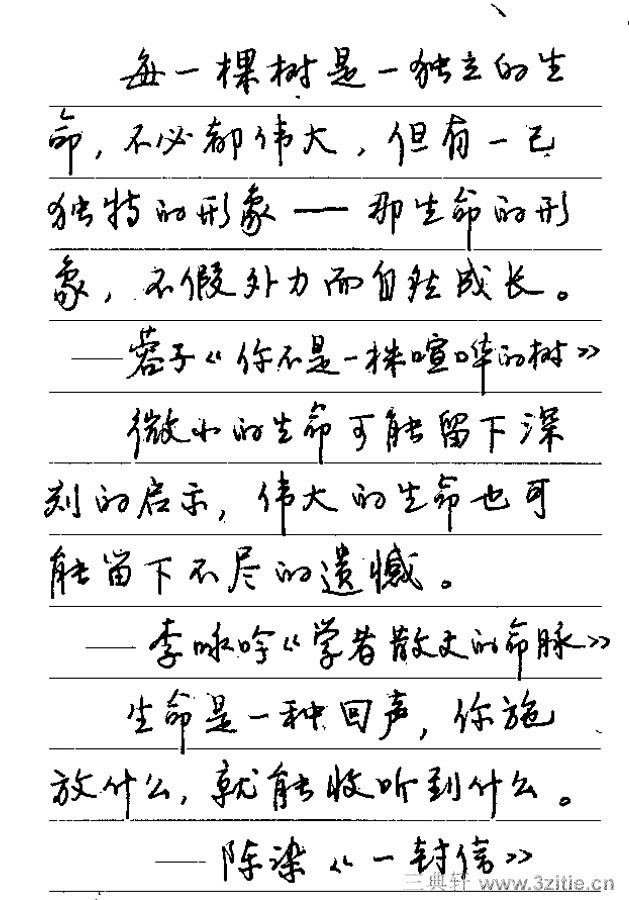 每一棵树是一独立的生
命，不必都伟大，但有一己
独特的形象——那生命的形
象，不假外力而自然成长。
——蓉子《你不是一株喧哗的树》
微小的生命可能留下深
刻的启示，伟大的生命也可
能留下不尽的遗憾。
——李咏吟《学者散文的命脉》
生命是一种回声，你施
放什么，就能收听到什么。
——陈染《一封信》
三典轩 www.3zitie.cn